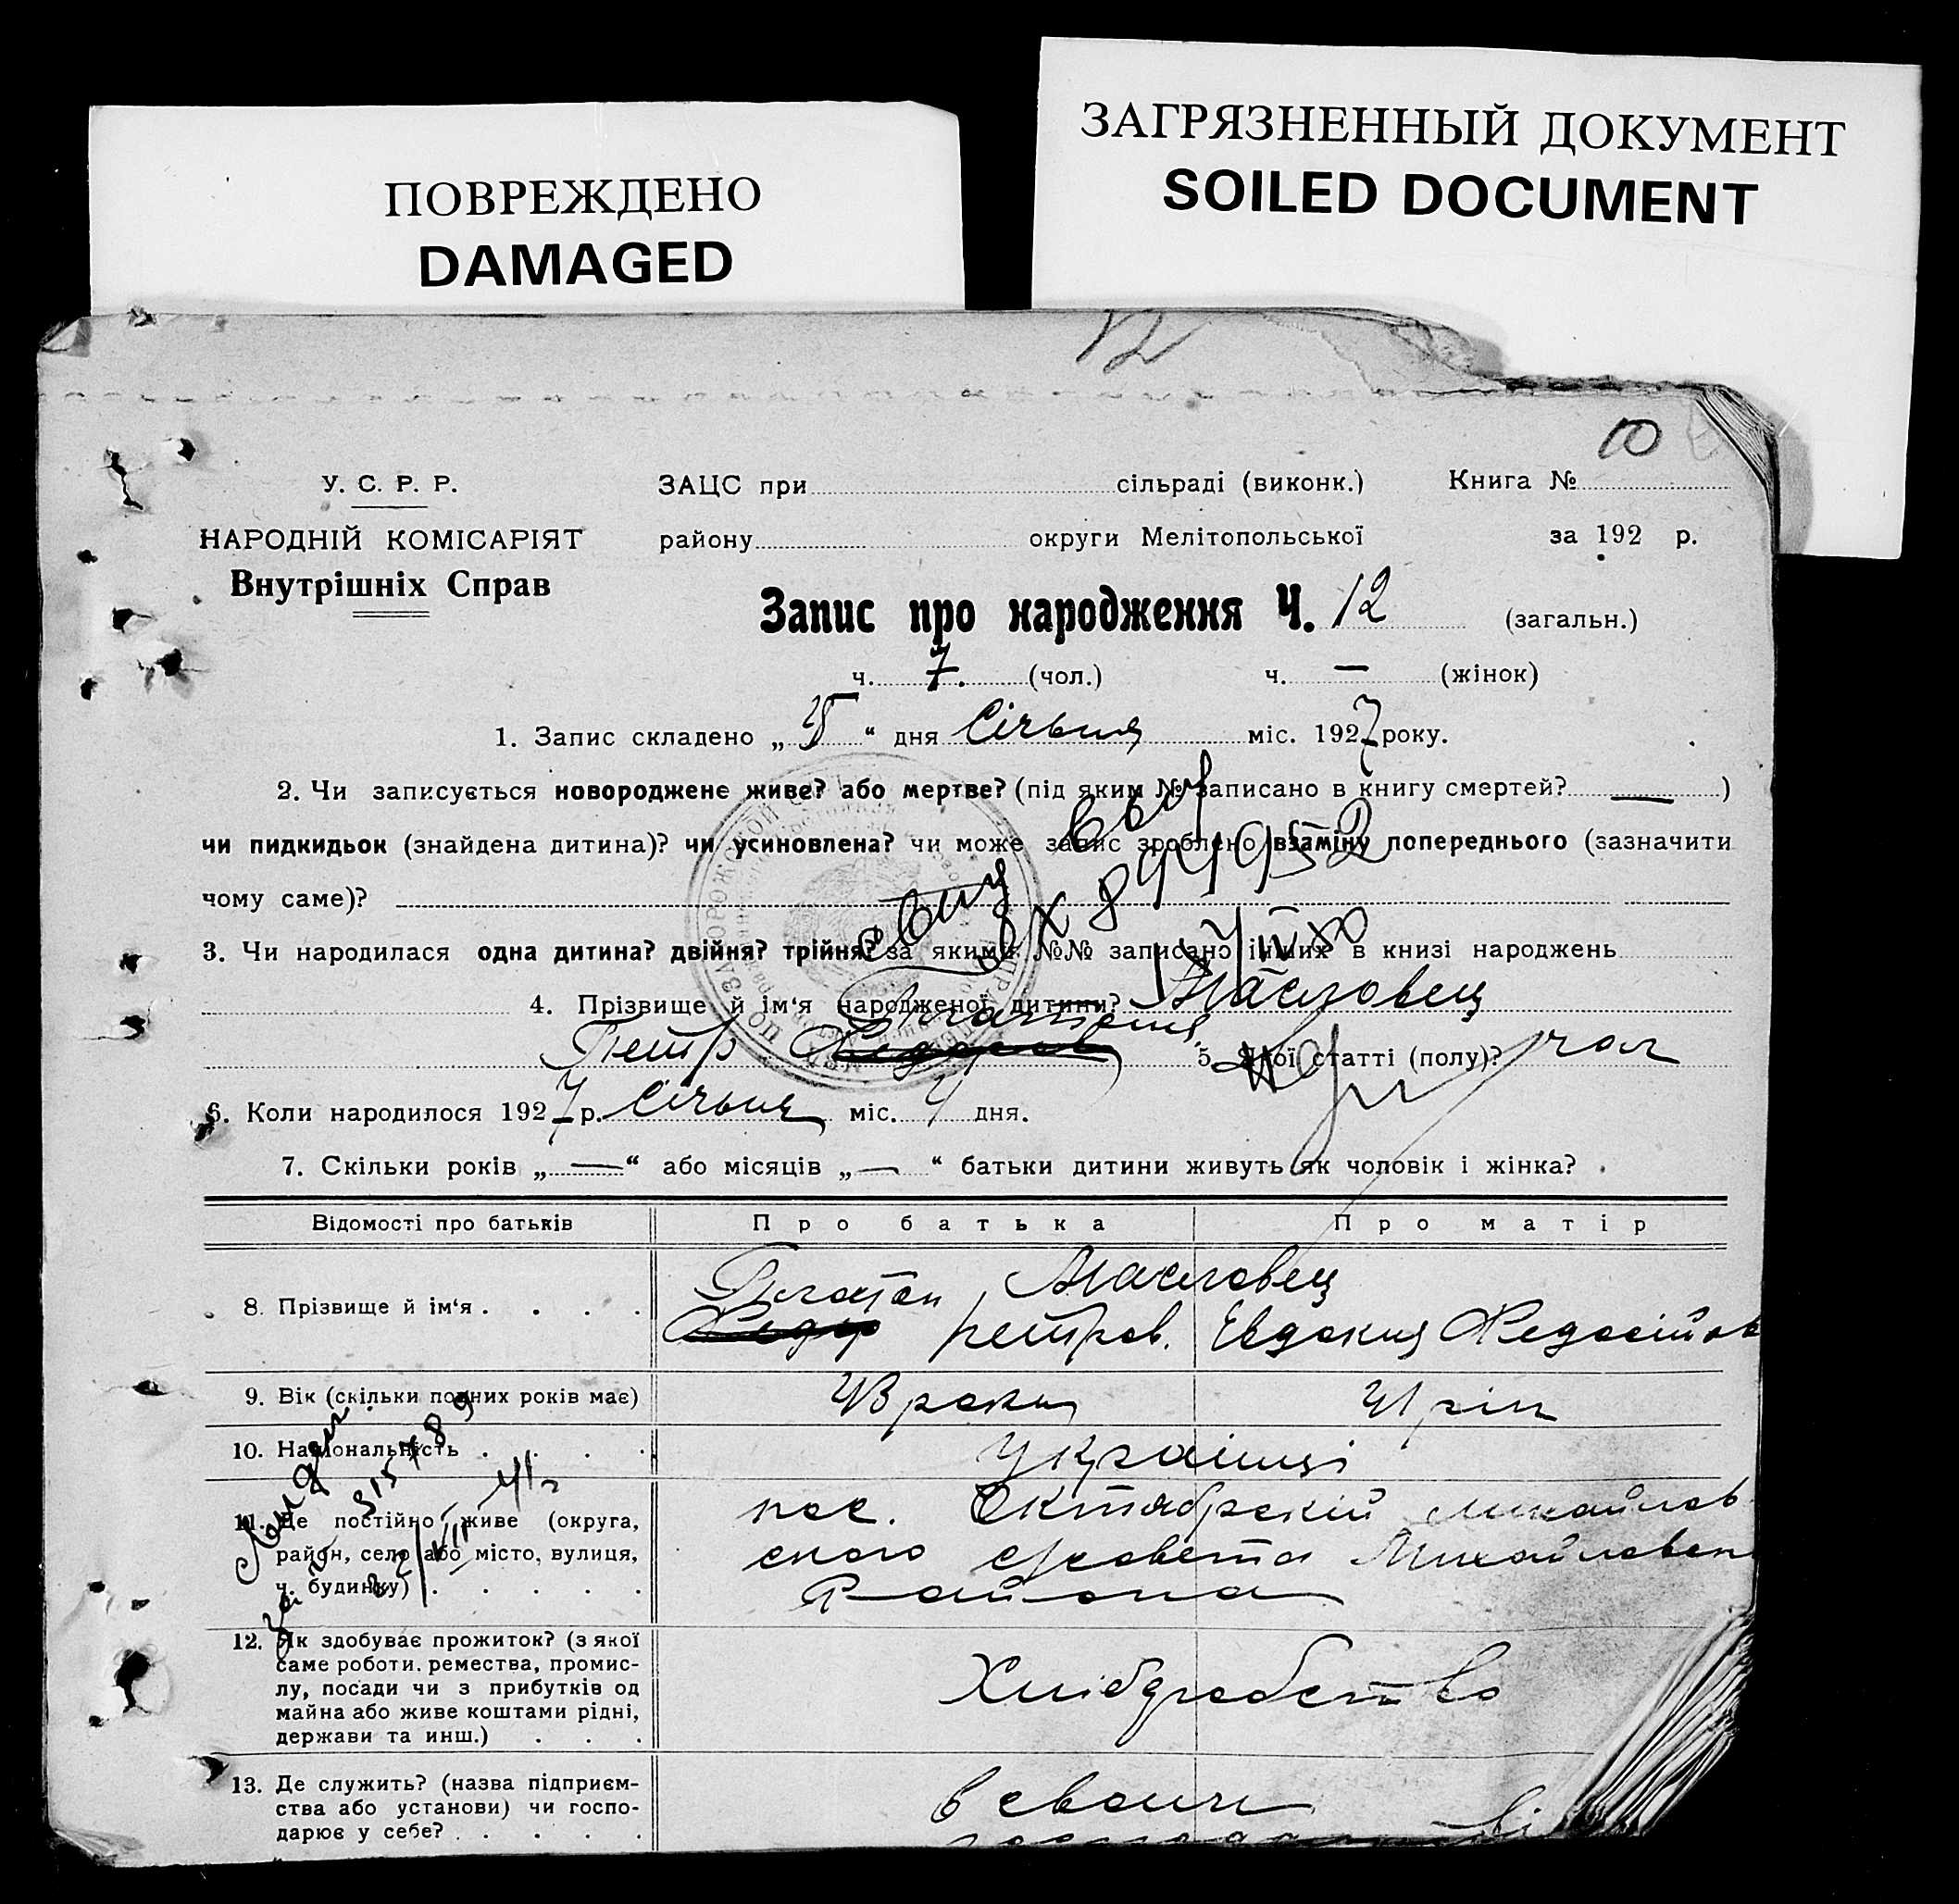 ЗАГРЯЗНЕННЫЙ ДОКУМЕНТ
SOILED DOCUMENT
ПОВРЕЖДЕНО
DAMAGED
12
10
У. С. Р. Р.
ЗАЦС при сільраді (виконк.) Книга №
НАРОДНІЙ КОМІСАРІЯТ
району округи Мелітопольської за 192 р.
Внутрішніх Справ
Запис про народження Ч. 12 (загальн.)
ч. 7. (чол.) ч. — (жінок)
1. Запис складено „ “ дня Січьня міс. 1927 року.
2. Чи записується новороджене живе? або мертве? (під яким № записано в книгу смертей? — )
чи пидкидьок (знайдена дитина)? чи усиновлена? чи може запис зроблено взаміну попереднього (зазначити
чому саме)?
3. Чи народилася одна дитина? двійня? трійня? за якими №№ записано інших в книзі народжень
4. Прізвище й ім‘я народженої дитини? Масловец
Петр 5. Якої статті (полу)? чол
6. Коли народилося 1927 р. Січьня міс. 4 дня.
7. Скільки років „ — “ або місяців „ — “ батьки дитини живуть як чоловік і жінка?
Відомості про батьків Про батька Про матір
8. Прізвище й ім‘я . . . .
Платон Масловец
Петров. Евдокия
9. Вік (скільки повних років має) 43 роки 41 рік
10. Національність . . . . Українці
11. Де постійно живе (округа,
район, село або місто, вулиця,
ч. будинку) . . . . .
пос. Октябрскій Михайлов
ского Михайловск
Района
12. Як здобуває прожиток? (з якої
саме роботи, ремества, промис-
лу, посади чи з прибутків од
майна або живе коштами рідні,
держави та инш.) . . .
Хлібдробство
13. Де служить? (назва підприєм-
ства або установи) чи госпо-
дарює у себе? . . . . .
в своим